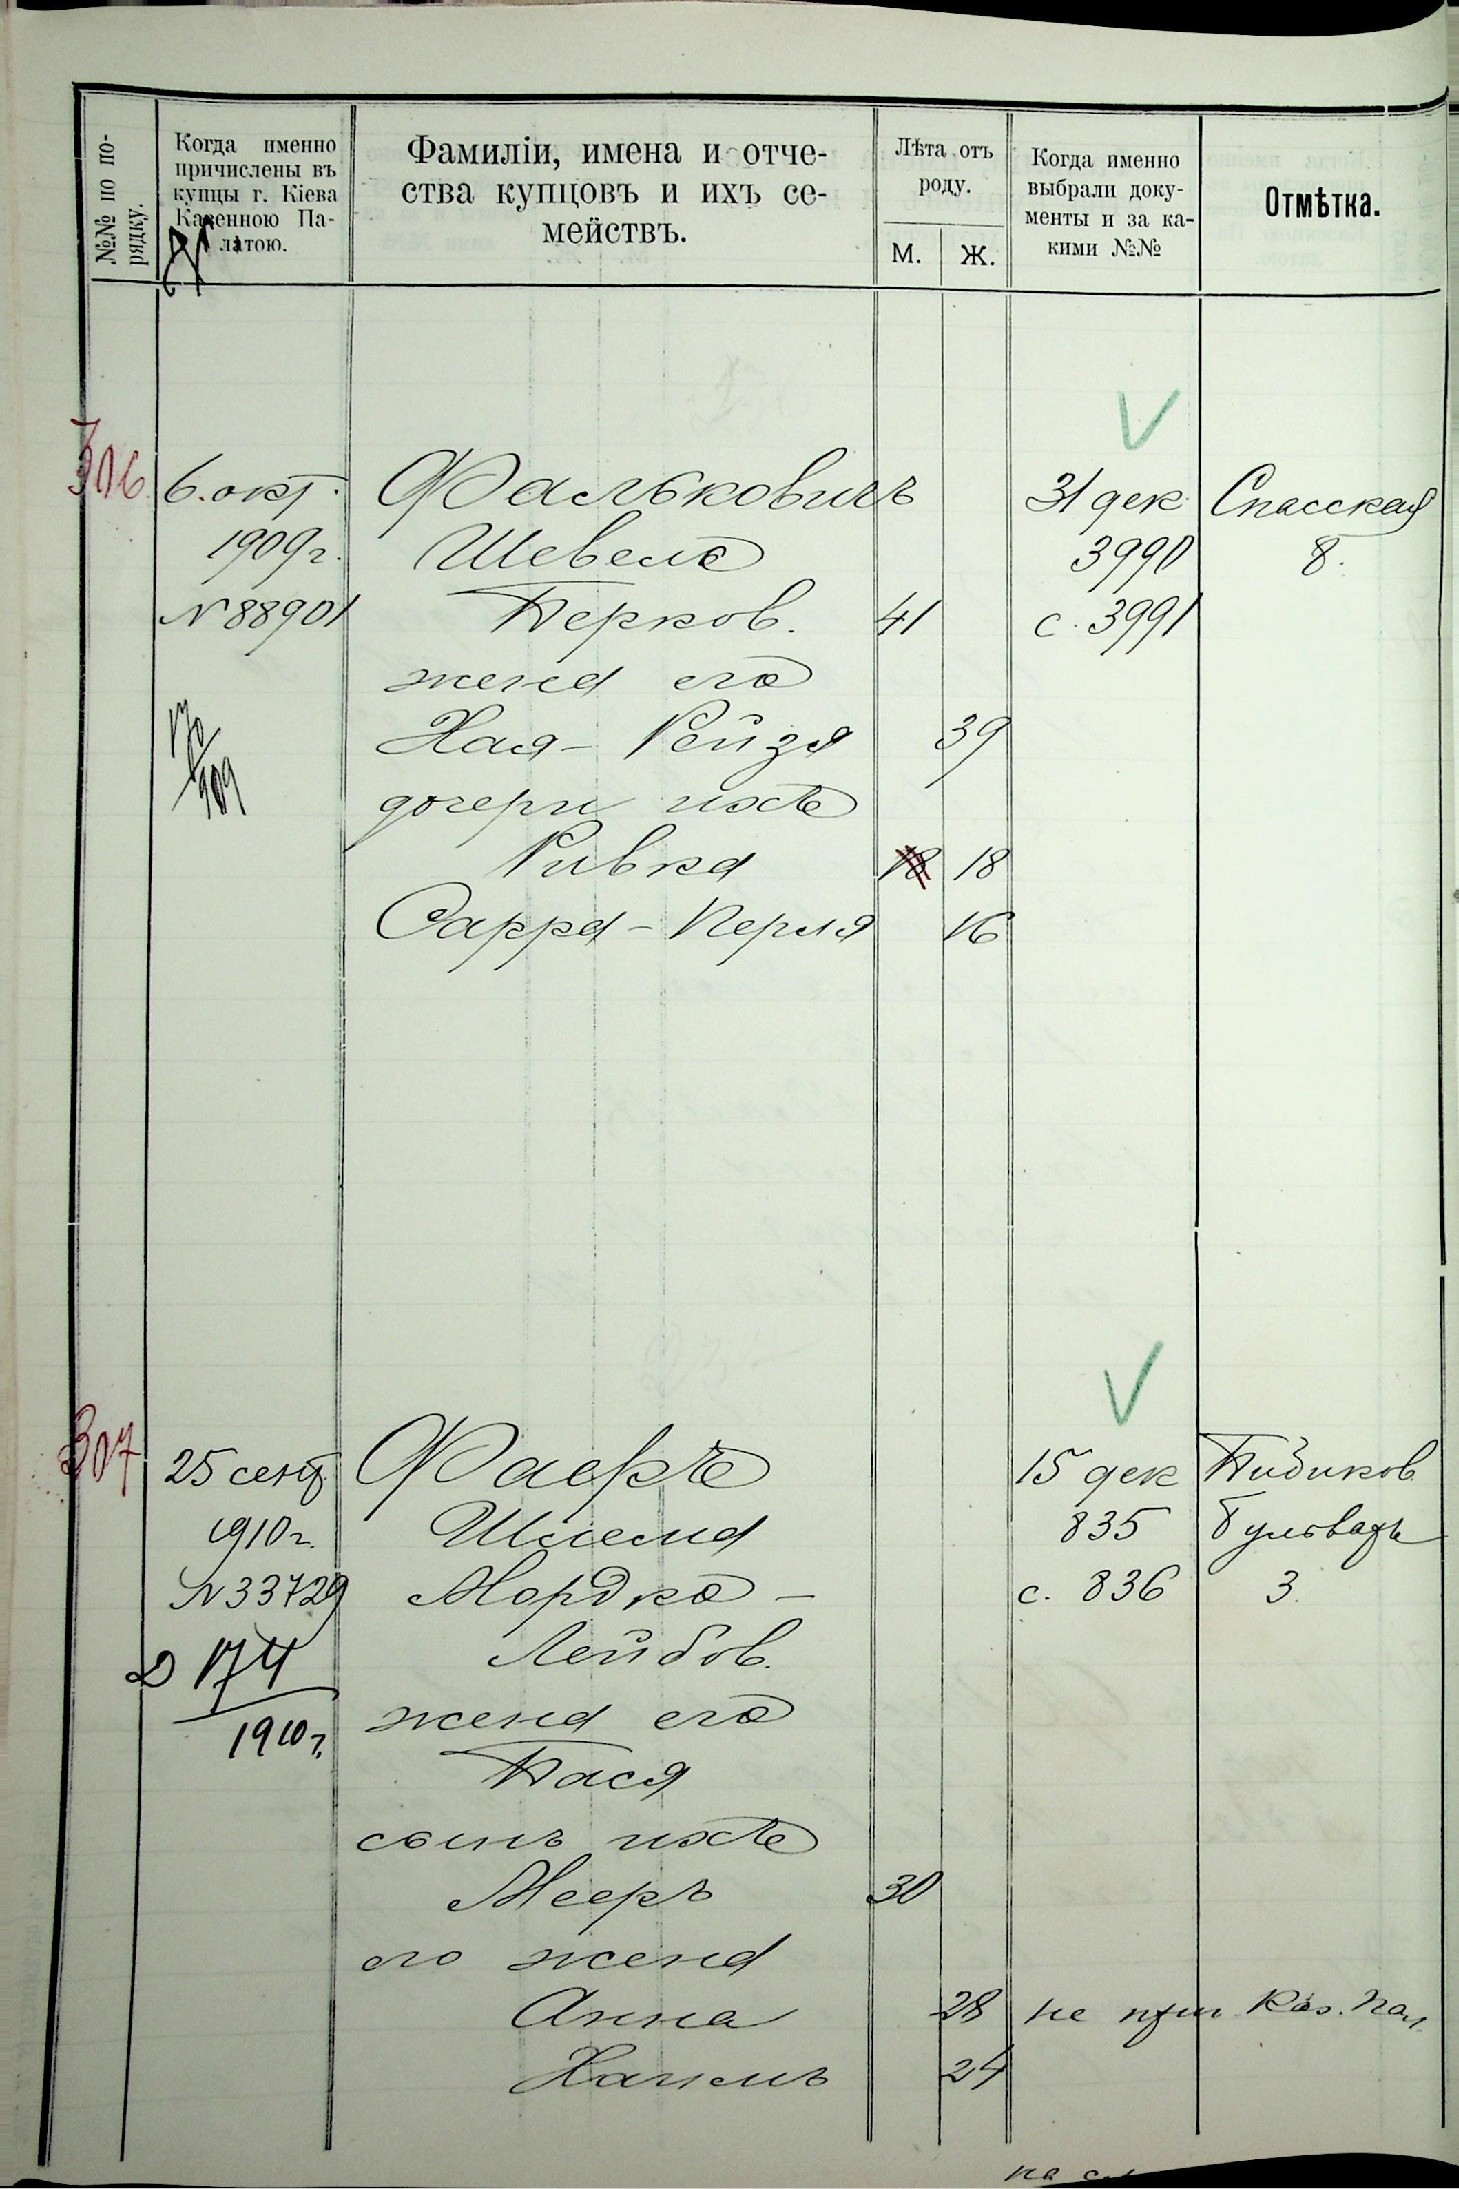 №№ по по-
рядку.
Когда именно
причислены въ
купцы г. Кіева
Казенною Па-
латою.
Фамиліи, имена и отче-
ства купцовъ и ихъ се-
мействъ.
Лѣта отъ
роду.
М.
Ж.
Когда именно
выбрали доку-
менты и за ка-
кими №№
Отмѣтка.
306 6. окт. Фальковичъ 31 дек Спасская
1909 г. Шевель 3990 8.
N 88901 Берков. 41 с. 3991
жена его
Хая - Рейзя 39
дочери ихъ
Ривка 18 18
Сарра - Перля 16
170
909
307 25 сент. Фаеръ 15 дек Бибиков.
1910 г. Шлема 835 бульваръ
N 33729 Мордко - с. 836 3.
Лейбов.
174
1910 г.
жена его
Бася
сынъ ихъ
Мееръ 30
его жена
Анна 28 не прич Каз. Пал.
Хаимъ 24